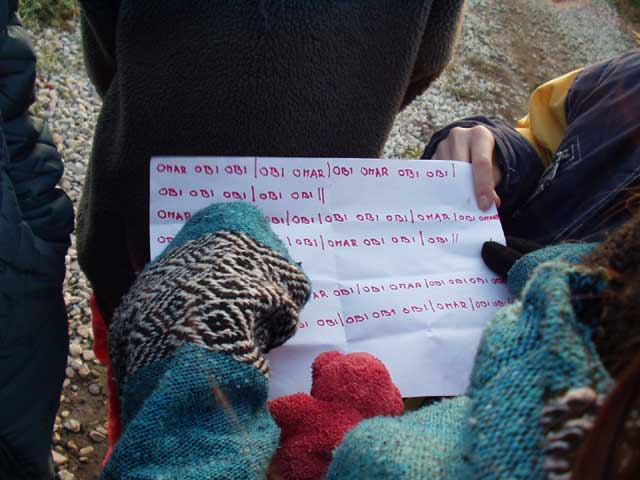 OMAR OBI OBI | OBI OMAR | OBI OMAR OBI OBI |
OBI OBI OBI | OBI OBI //
OMAR | OBI | OBI OBI OBI | OMAR | OBI OMAR
OBI | OMAR OBI OBI | OBI //
OBI | OBI OMAR | OBI OBI OBI
OBI | OBI OBI OBI | OMAR | OBI OBI //